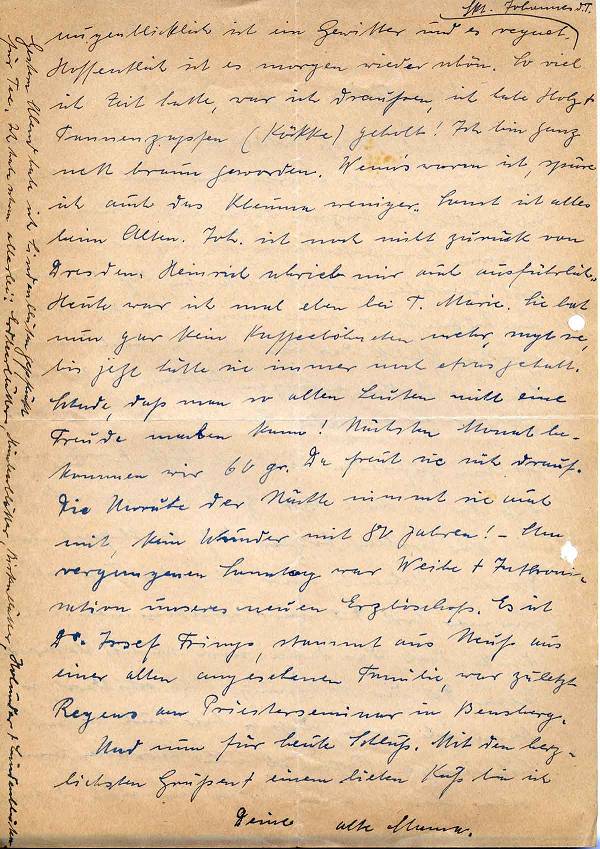 Skt. Johannes d.T.
augenblicklich ist ein Gewitter und es regnet.
Hoffentlich ist es morgen wieder schön. So viel
ich Zeit hatte, war ich draußen, ich habe Holz +
Tannenzapfen (Kökke) geholt! Ich bin ganz
nett braun geworden. Wenn's warm ist, spüre
ich auch das Rheuma weniger. Sonst ist alles
beim Alten. Joh. ist noch nicht zurück von
Dresden. Heinrich schrieb mir auch ausführlich.
Heute war ich mal eben bei T. Marie. Sie hat
nun gar kein Kaffeeböhnchen mehr, sagt sie,
bis jetzt hätte sie immer noch etwas gehabt.
Schade, daß man so alten Leuten nicht eine
Freude machen kann! Nächsten Monat be-
kommen wir 60 gr. Da freut sie sich drauf.
Die Unruhe der Nächte nimmt sie auch
mit, kein Wunder mit 80 Jahren! - Am
vergangenen Sonntag war Weihe + Inthroni-
sation unseres neuen Erzbischofs. Es ist
Dr. Josef Frings, stammt aus Neuß aus
einer alten angesehenen Familie, war zuletzt
Regens am Priesterseminar in Bensberg.
Und nun für heute Schluß. Mit den herz-
lichsten Grüßen + einem lieben Kuß bin ich
Deine alte Mama.
Gestern Abend habe ich Lindenblüten gepflückt
für Tee. Ich habe schon allerlei: Erdbeerblätter, Himbeerblätter, Birkenblätter, Holunder + Lindenblüten